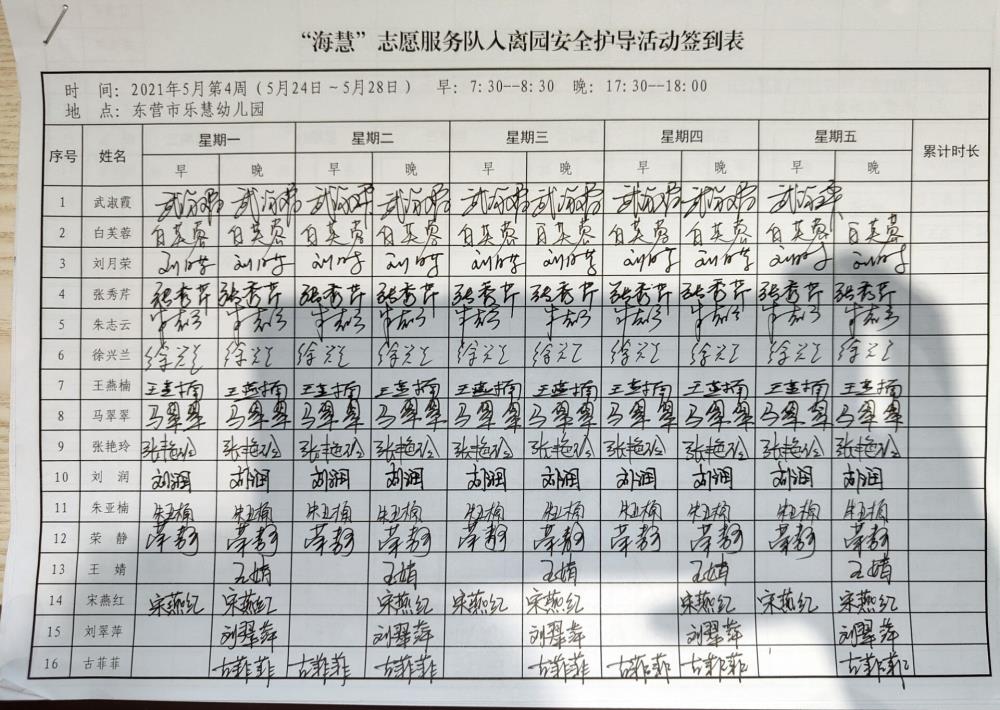 “海慧”志愿服务队入离园安全护导活动签到表
时 间：2021年5月第4周（5月24日~5月28日） 早：7:30--8:30 晚：17:30--18:00
地 点：东营市乐慧幼儿园
序号 姓名 星期一 星期二 星期三 星期四 星期五 累计时长
早 晚 早 晚 早 晚 早 晚 早 晚
1 武淑霞 武淑霞 武淑霞 武淑霞 武淑霞 武淑霞 武淑霞 武淑霞 武淑霞 武淑霞
2 白芙蓉 白芙蓉 白芙蓉 白芙蓉 白芙蓉 白芙蓉 白芙蓉 白芙蓉 白芙蓉 白芙蓉 白芙蓉
3 刘月荣 刘月荣 刘月荣 刘月荣 刘月荣 刘月荣 刘月荣 刘月荣 刘月荣 刘月荣 刘月荣
4 张秀芹 张秀芹 张秀芹 张秀芹 张秀芹 张秀芹 张秀芹 张秀芹 张秀芹 张秀芹 张秀芹
5 朱志云 朱志云 朱志云 朱志云 朱志云 朱志云 朱志云 朱志云 朱志云 朱志云 朱志云
6 徐兴兰 徐兴兰 徐兴兰 徐兴兰 徐兴兰 徐兴兰 徐兴兰 徐兴兰 徐兴兰 徐兴兰 徐兴兰
7 王燕楠 王燕楠 王燕楠 王燕楠 王燕楠 王燕楠 王燕楠 王燕楠 王燕楠 王燕楠 王燕楠
8 马翠翠 马翠翠 马翠翠 马翠翠 马翠翠 马翠翠 马翠翠 马翠翠 马翠翠 马翠翠 马翠翠
9 张艳玲 张艳玲 张艳玲 张艳玲 张艳玲 张艳玲 张艳玲 张艳玲 张艳玲 张艳玲 张艳玲
10 刘 润 刘润 刘润 刘润 刘润 刘润 刘润 刘润 刘润 刘润 刘润
11 朱亚楠 朱亚楠 朱亚楠 朱亚楠 朱亚楠 朱亚楠 朱亚楠 朱亚楠 朱亚楠 朱亚楠 朱亚楠
12 荣 静 荣静 荣静 荣静 荣静 荣静 荣静 荣静 荣静 荣静 荣静
13 王 婧 王婧 王婧 王婧 王婧 王婧
14 宋燕红 宋燕红 宋燕红 宋燕红 宋燕红 宋燕红 宋燕红 宋燕红 宋燕红
15 刘翠萍 刘翠萍 刘翠萍 刘翠萍 刘翠萍 刘翠萍
16 古菲菲 古菲菲 古菲菲 古菲菲 古菲菲 古菲菲 古菲菲 古菲菲